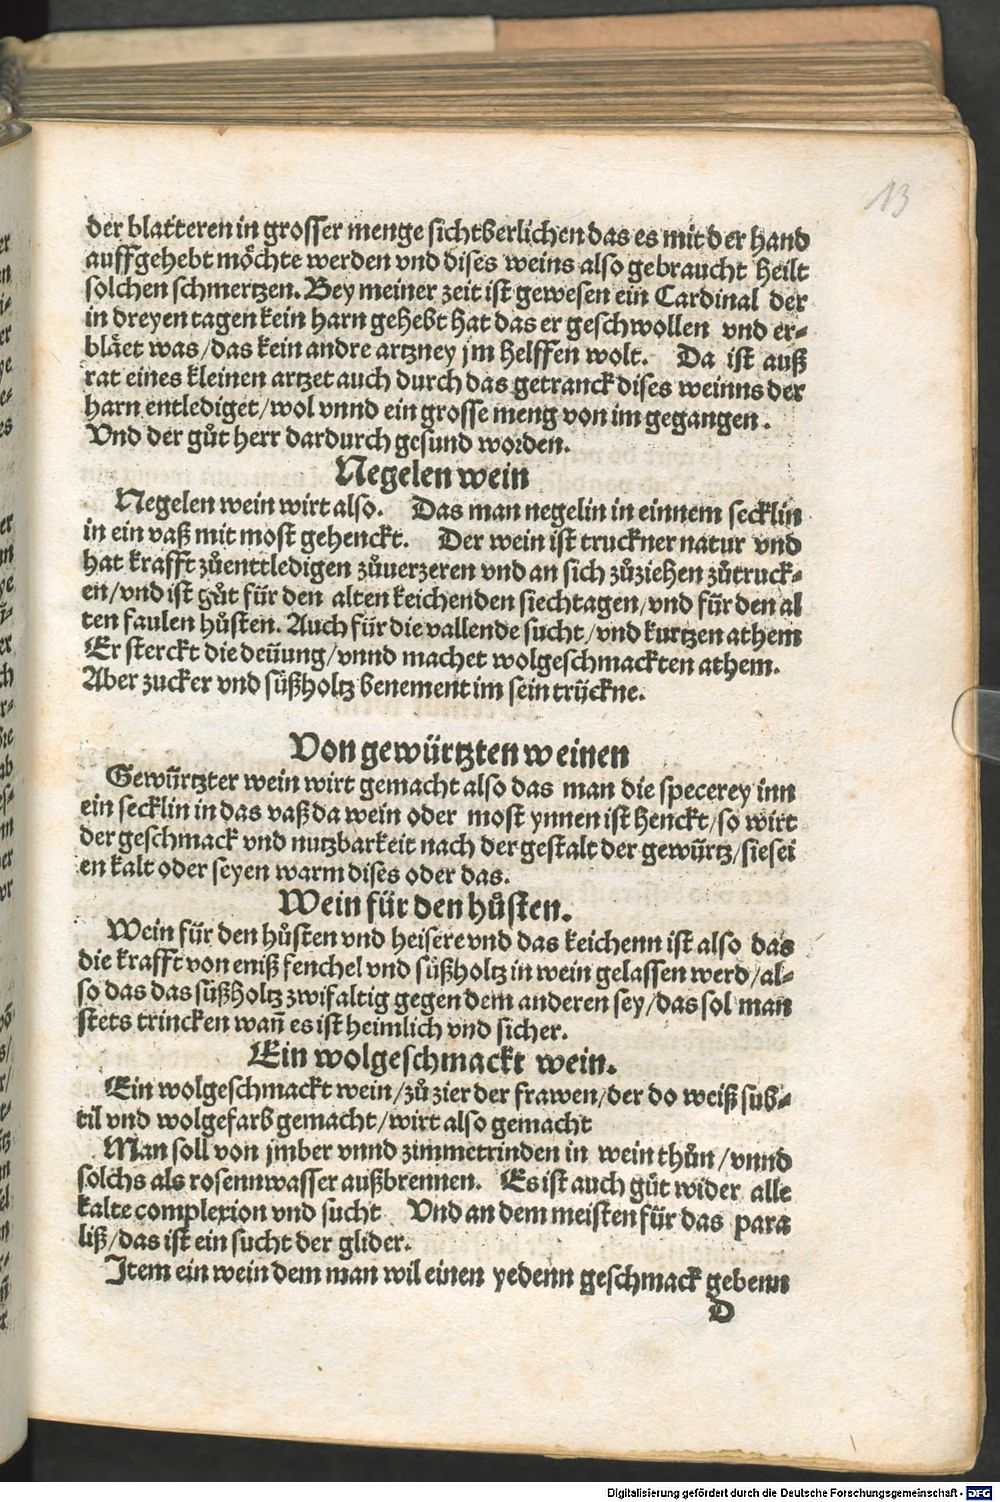 13
der blatteren in grosser menge sichtberlichen das es mit der hand
auffgehebt möchte werden vnd dises weins also gebraucht heilt
solchen schmertzen. Bey meiner zeit ist gewesen ein Cardinal der
in dreyen tagen kein harn gehebt hat das er geschwollen vnd er-
blået was/das kein andre artzney jm helffen wolt. Da ist auß
rat eines kleinen artzet auch durch das getranck dises weinns der
harn entlediget/wol vnnd ein grosse meng von im gegangen.
Vnd der gůt herr dardurch gesund worden.
Negelen wein
Negelen wein wirt also. Das man negelin in einnem secklin
in ein vaß mit most gehenckt. Der wein ist truckner natur vnd
hat krafft zůenttledigen zůuerzeren vnd an sich zůziehen zůtruck-
en/vnd ist gůt für den alten keichenden siechtagen/vnd für den al
ten faulen hůsten. Auch für die vallende sucht/vnd kurtzen athem
Er sterckt die deüung/vnnd machet wolgeschmackten athem.
Aber zucker vnd süßholtz benement im sein trückne.
Von gewürtzten weinen
Gewürtzter wein wirt gemacht also das man die specerey inn
ein secklin in das vaß da wein oder most ynnen ist henckt/so wirt
der geschmack vnd nutzbarkeit nach der gestalt der gewürtz/sie sei
en kalt oder seyen warm dises oder das.
Wein für den hůsten.
Wein für den hůsten vnd heisere vnd das keichenn ist also das
die krafft von eniß fenchel vnd süßholtz in wein gelassen werd/al-
so das das süßholtz zwifaltig gegen dem anderen sey/das sol man
stets trincken wañ es ist heimlich vnd sicher.
Ein wolgeschmackt wein.
Ein wolgeschmackt wein/zů zier der frawen/der do weiß sub-
til vnd wolgefarb gemacht/wirt also gemacht
Man soll von jmber vnnd zimmetrinden in wein thůn/vnnd
solchs als rosennwasser außbrennen. Es ist auch gůt wider alle
kalte complexion vnd sucht Vnd an dem meisten für das para
liß/das ist ein sucht der glider.
Item ein wein dem man wil einen yedenn geschmack gebenn
D
Digitalisierung gefördert durch die Deutsche Forschungsgemeinschaft - DFG